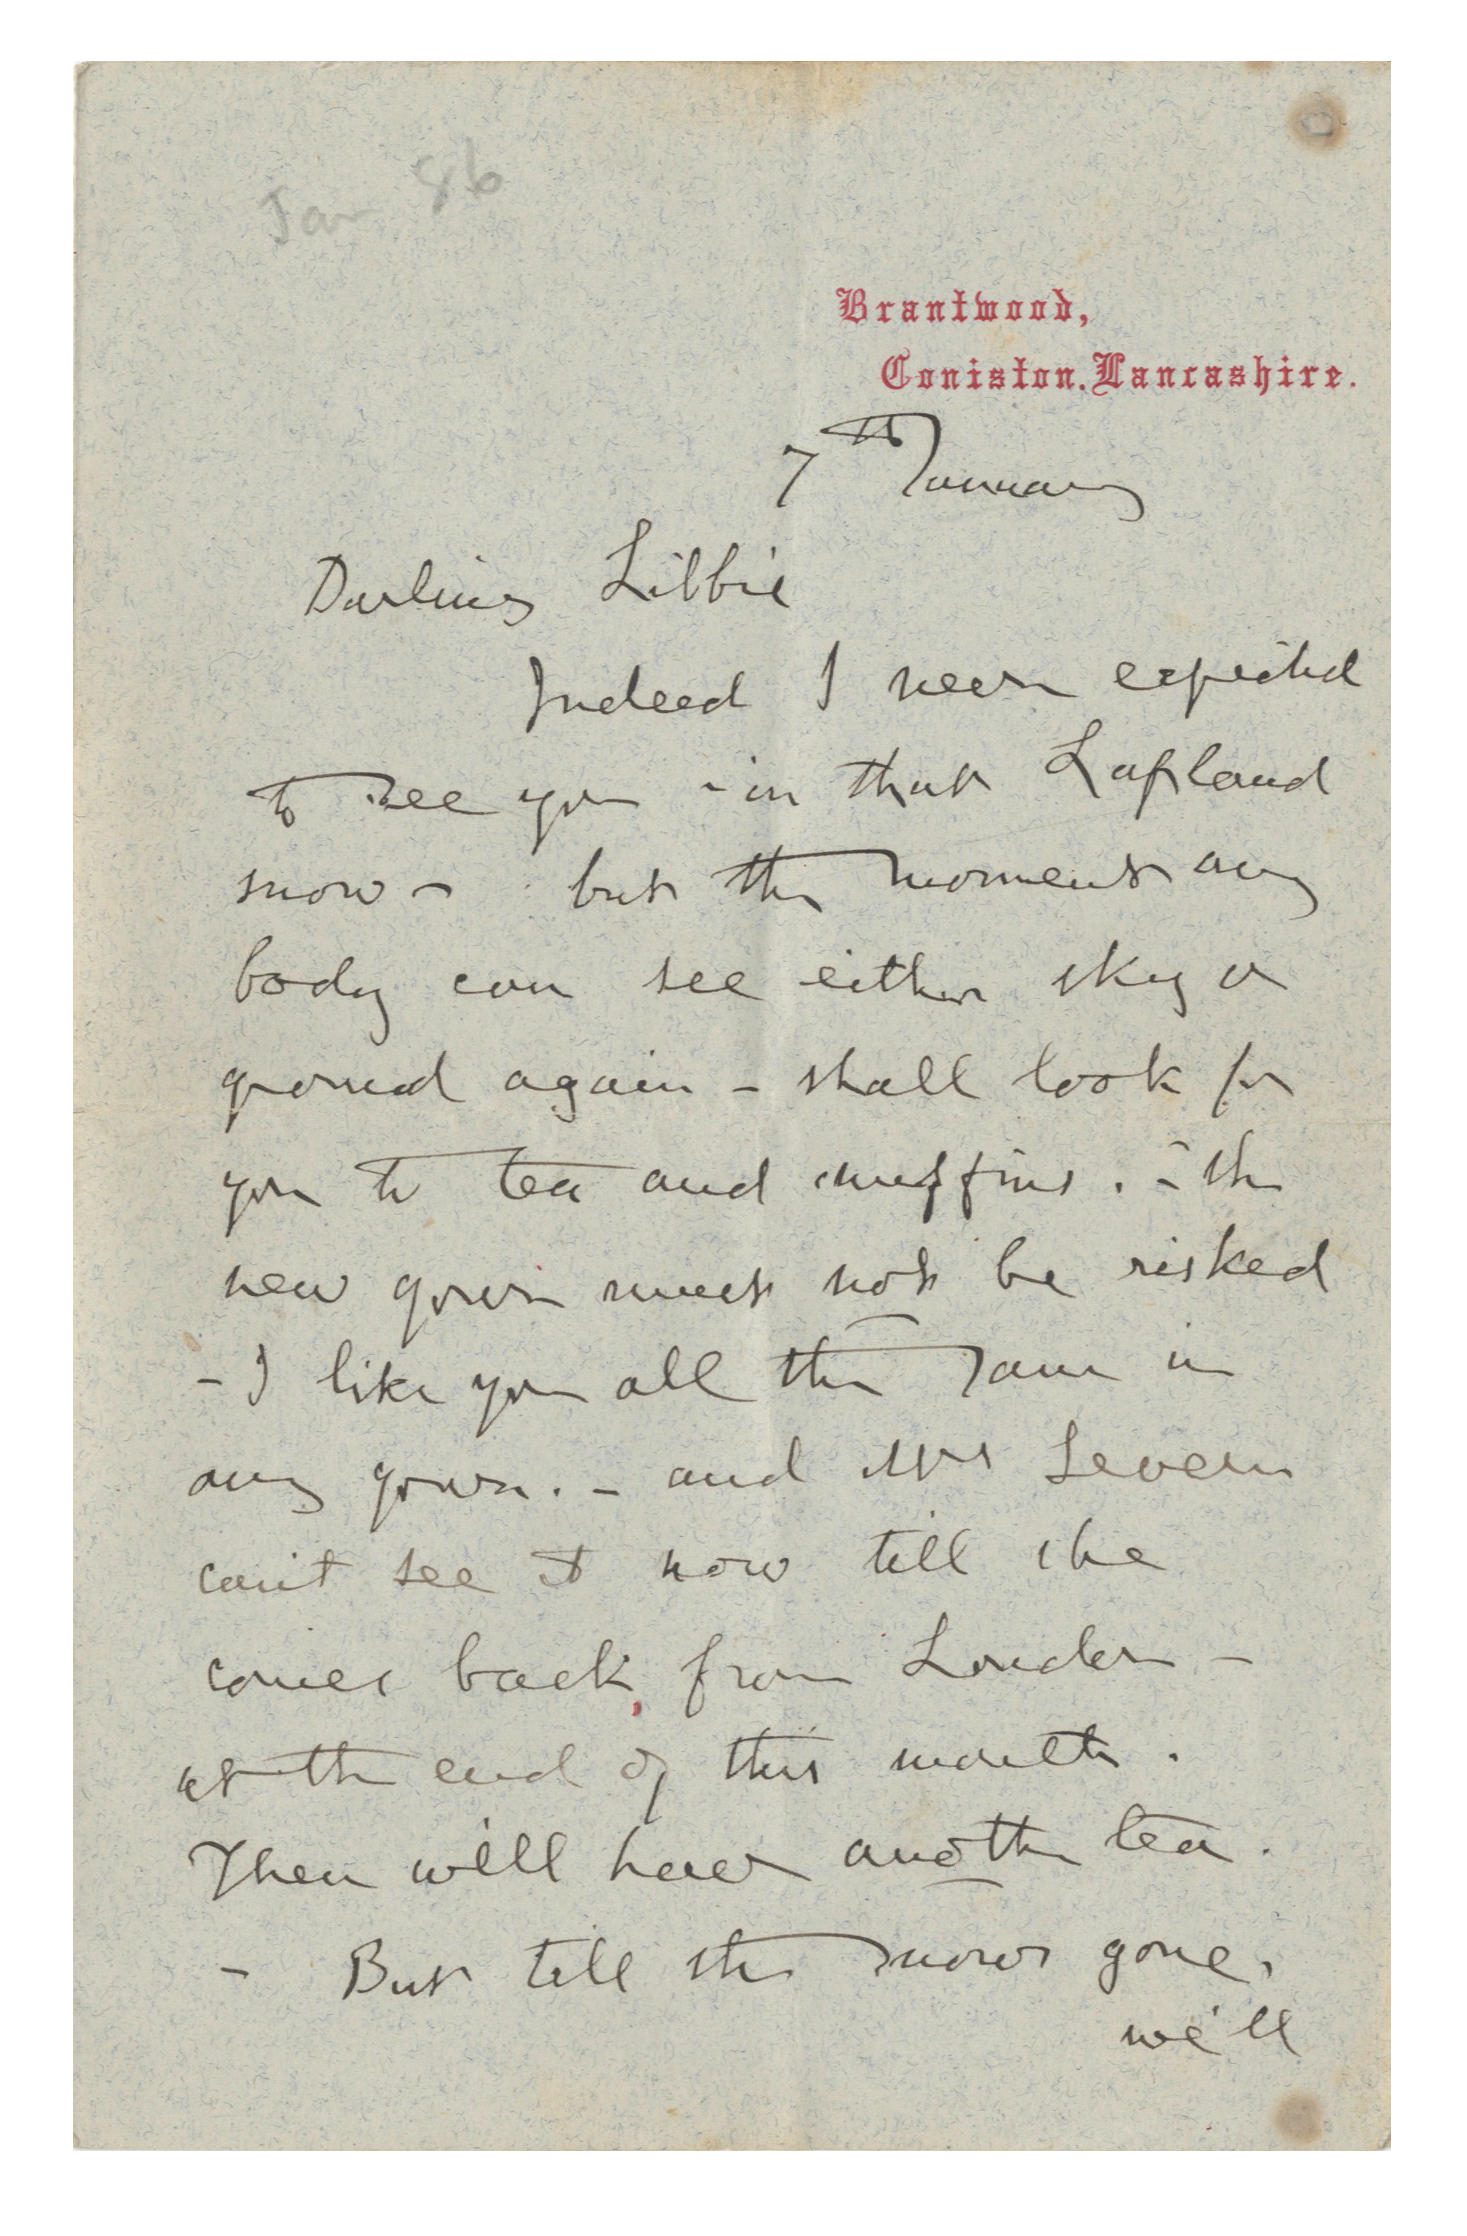 Jan 86
Brantwood,
Coniston. Lancashire.
7th January
Darling Libbie
Indeed I never expected
to see you - in that Lapland
snow - but the moment any
body can see either sky or
ground again - shall look for
you to tea and muffins. - the
new gown must not be risked
- I like you all the same in
any gown. - and Mrs Severn
can't see it now till she
comes back from London -
at the end of this month.
Then we'll have another tea.
- But till the snows gone,
we'll